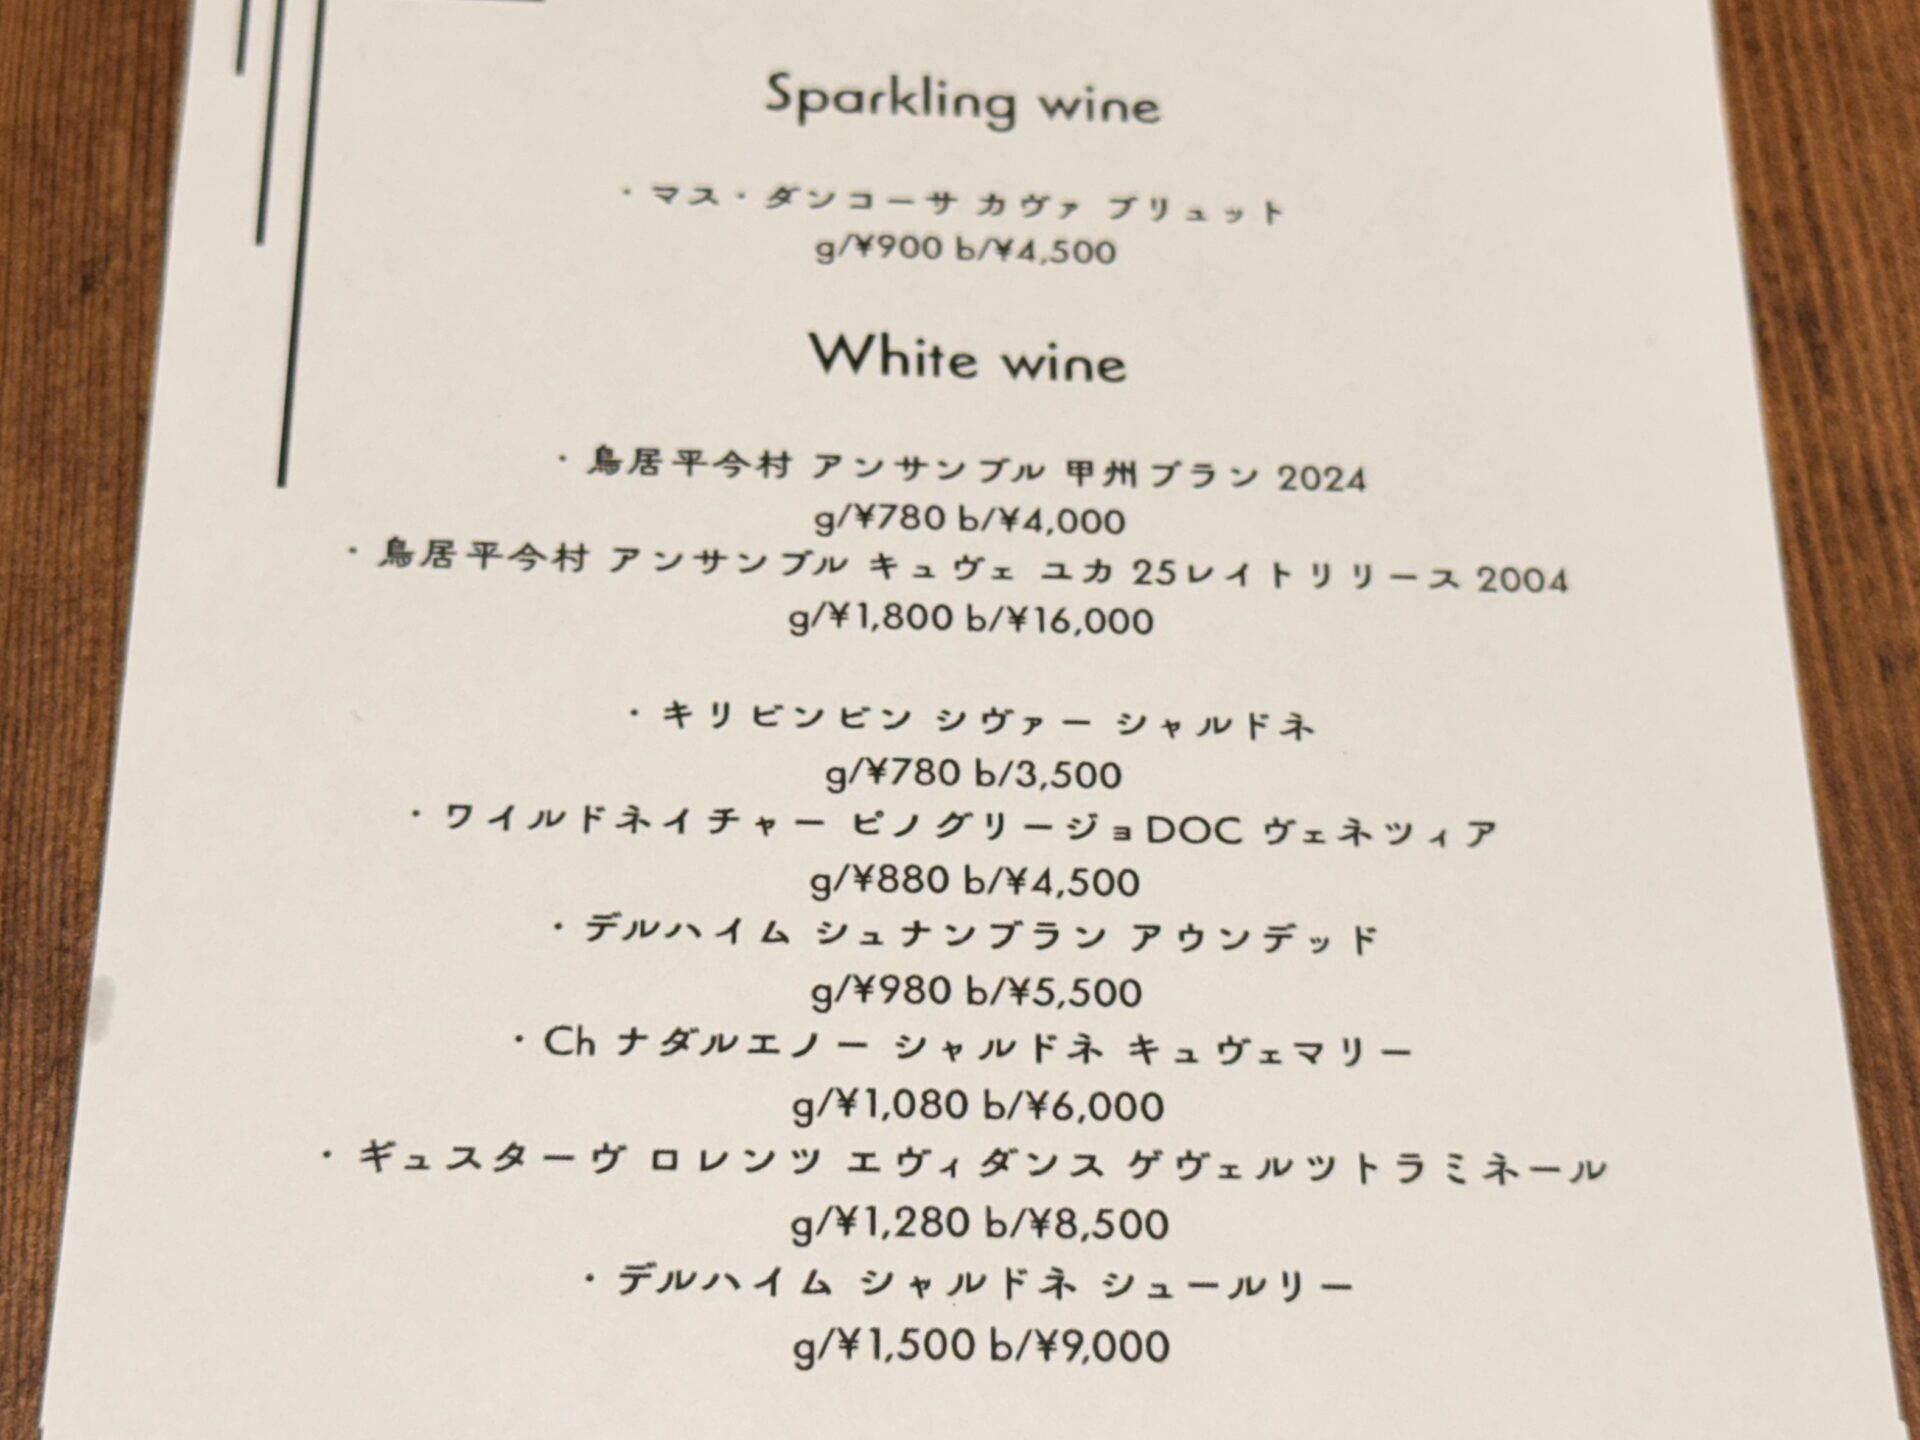 Sparkling wine
・マス・ダンコーサ カヴァ ブリュット
g/¥900 b/¥4,500
White wine
・鳥居平今村 アンサンブル 甲州ブラン 2024
g/¥780 b/¥4,000
・鳥居平今村 アンサンブル キュヴェ ユカ 25レイトリリース 2004
g/¥1,800 b/¥16,000
・キリビンビン シヴァー シャルドネ
g/¥780 b/3,500
・ワイルドネイチャー ピノグリージョDOC ヴェネツィア
g/¥880 b/¥4,500
・デルハイム シュナンブラン アウンデッド
g/¥980 b/¥5,500
・Ch ナダルエノー シャルドネ キュヴェマリー
g/¥1,080 b/¥6,000
・ギュスターヴ ロレンツ エヴィダンス ゲヴェルツトラミネール
g/¥1,280 b/¥8,500
・デルハイム シャルドネ シュールリー
g/¥1,500 b/¥9,000